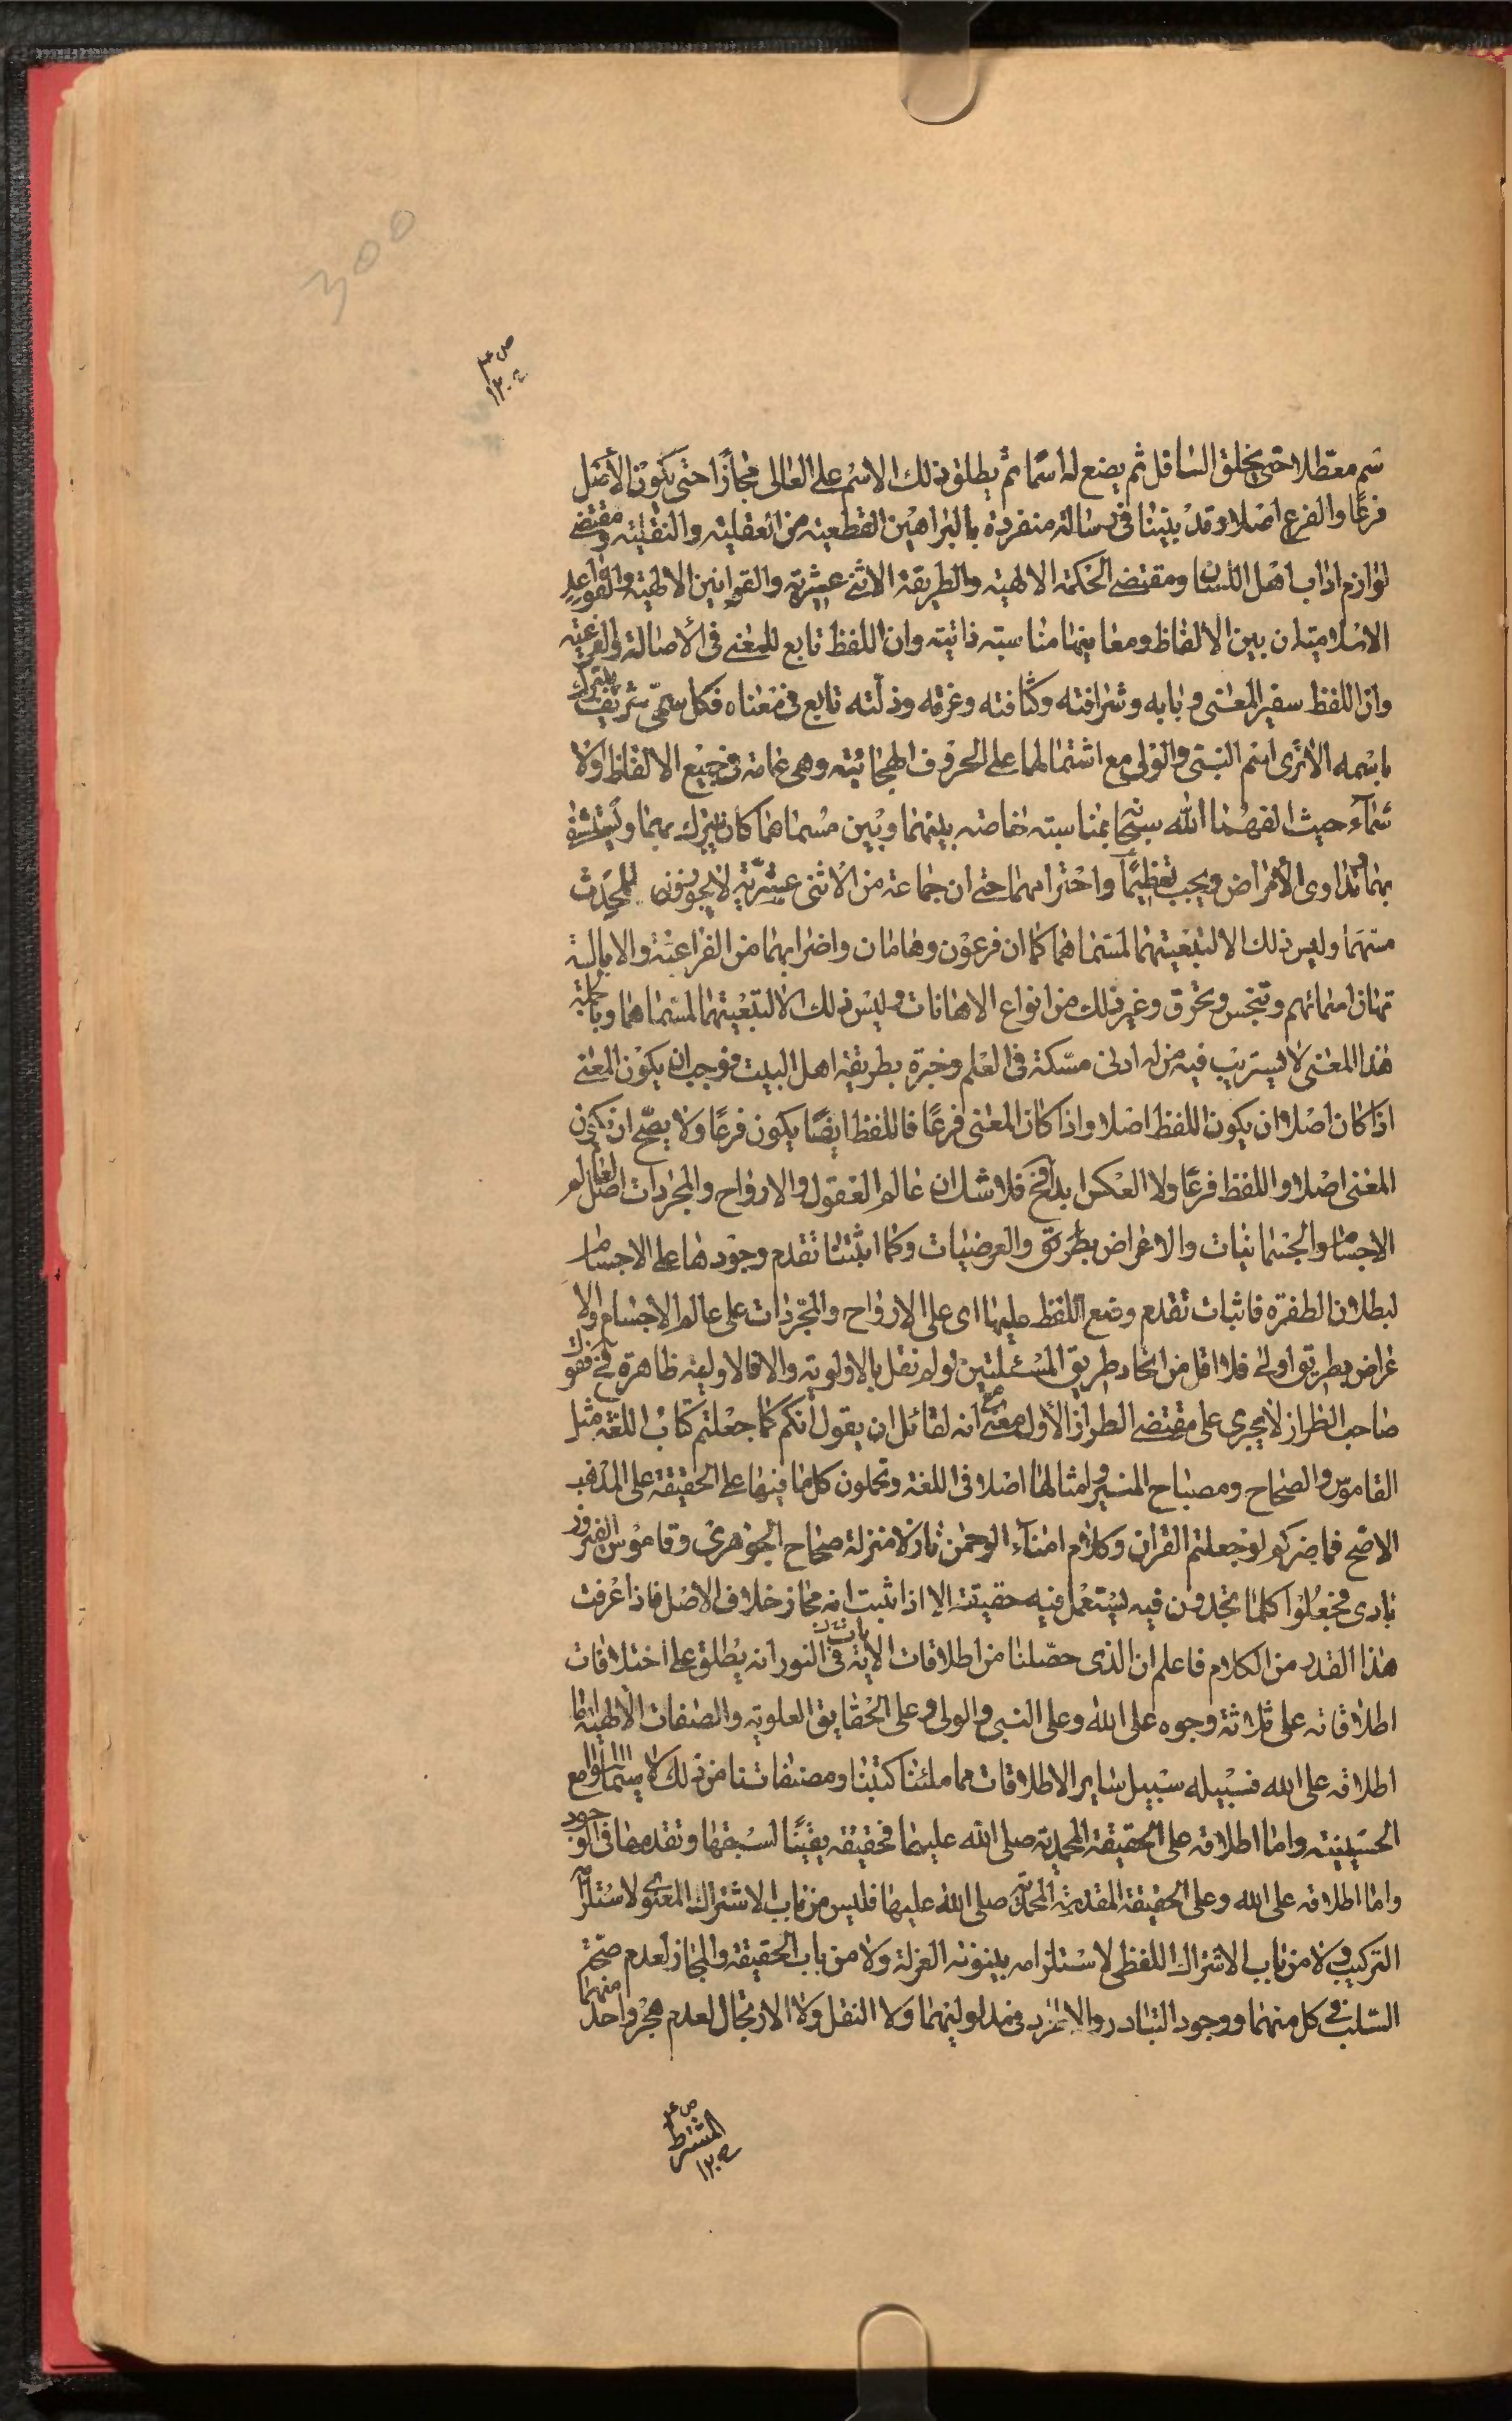 300
ص ع
١٢٠٤
سم معطلا حتى يخلق السافل ثم يضع له اسما ثم يطلق ذلك الاسم على العالى مجازا حتى يكون الأصل
فرعا والفرع اصلا وقد بيّنا فى رسالة منفردة بالبراهين القطعية من العقلية والنقلية ومقتضى
لوازم اداب اهل اللسان ومقتضى الحكمة الالهية والطريقة الاثنى عشرية والقوانين الالهية والقواعد
الاسلامية ان بين الالفاظ ومعانيها مناسبة ذاتية وان اللفظ تابع للمعنى فى الأصالة والفرعية
وان اللفظ سفير المعنى وبابه وشرافته وكثافته وعزته وذلته تابع فى معناه فكل مسمى شريف يتبرك
باسمه الا ترى اسم النبى والولى مع اشتمالهما على الحروف الهجائية وهى عامة فى جميع الالفاظ ولا
سماء حيث الفهما الله سبحانه بمناسبة خاصة بينهما وبين مسماهما كان يتبرك بهما ويستشفى
بهما وتداوى الأمراض ويجب تعظيما واحترامهما حتى ان جماعة من الاثنى عشرية لا يجوزون للمحدث
مسهما وليس ذلك الا لتبعيتهما لمسماهما كما ان فرعون وهامان واضرابهما من الفراعنة والابالسة
تهان اسمائهم وتنجس وتحرق وغير ذلك من انواع الاهانات وليس ذلك الا لتبعيتهما لمسماهما وبالجملة
هذا المعنى لا يستريب فيه من له ادنى مسكة فى العلم وخبرة بطريقة اهل البيت فوجب ان يكون المعنى
اذا كان اصلا ان يكون اللفظ اصلا واذا كان المعنى فرعا فاللفظ ايضا يكون فرعا ولا يصح ان يكون
المعنى اصلا واللفظ فرعا ولا العكس ابدا فح فلا شك ان عالم العقول والارواح والمجردات اصل لعالم
الاجسام والجسمانيات والاعراض والعرضيات وكما اثبتنا تقدم وجودها على الاجسام
لبطلان الطفرة فاثبات تقدم وضع اللفظ عليها اى على الارواح والمجردات على عالم الاجسام والا
عراض بطريق اولى فلا اقل من اتحاد طريق المسئلتين لو لم نقل بالاولوية والا فالاولية ظاهرة فح فقول
صاحب الطراز لا يجرى على مقتضى الطراز الأول مع انه لقائل ان يقول انكم كما جعلتم كتاب اللغة مثل
القاموس والصحاح ومصباح المنير وامثالها اصلا فى اللغة وتحملون كلما فيها على الحقيقة على المذهب
الاصح فما ضركم لو جعلتم القران وكلام امناء الرحمن نازلا منزلة صحاح الجوهرى وقاموس الفيروز
بادى فجعلوا كلما تجدون فيه يستعمل فيه حقيقة الا اذا ثبت انه مجاز خلاف الاصل فاذا عرفت
هذا القدر من الكلام فاعلم ان الذى حصلنا من اطلاقات الايات فى النور انه يطلق على اختلافات
اطلاقاته على ثلاثة وجوه على الله وعلى النبى والولى وعلى الحقايق العلوية والصفات الالهية فاما
اطلاقه على الله فسبيله سبيل ساير الاطلاقات مما ملئنا كتبنا ومصنفاتنا من ذلك لا سيما اللوامع
الحسينية واما اطلاقه على الحقيقة المحمدية صلى الله عليهما فحقيقة يقينا لسبقها وتقدمها فى الوجود
واما اطلاقه على الله وعلى الحقيقة المقدسة المحمدية صلى الله عليها فليس من باب الاشتراك المعنوى لاستلزامه
التركيب ولا من باب الاشتراك اللفظى لاستلزامه بينونة العزلة ولا من باب الحقيقة والمجاز لعدم صحة
السلب فى كل منهما ووجود التبادر والاطراد فى مدلوليهما ولا النقل ولا الارتجال لعدم هجر واحد منهما
ص ع
المشترط
١٢٠٥